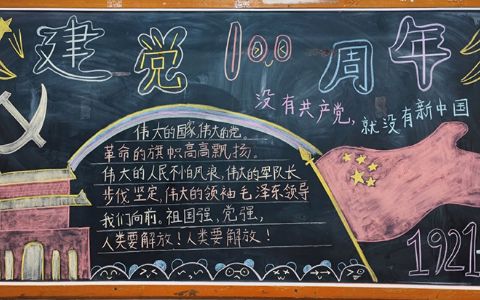 建党100周年
没有共产党，就没有新中国
伟大的国家,伟大的党。
革命的旗帜高高飘扬。
伟大的人民不怕风浪，伟大的军队长
步伐坚定，伟大的领袖毛泽东领导
我们向前。祖国强，党强，
人类要解放！人类要解放！
1921